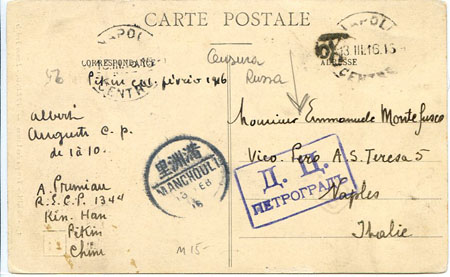 CARTE POSTALE
CORRESPONDANCE
ADRESSE
NAPOLI
CENTRO
NAPOLI
13.III.16.15
CENTRO
Censura
Russa
Pékin 
février 1916
Albert
Auguste C. P.
de 1 à 10.
A. Pruniau
R. S. C. P. 1344
Kin. Han
Pékin
Chine
Monsieur Emmanuele Montefusco
Vico. Pero A. S. Teresa 5
Naples
Italie
滿洲里
MANCHOULI
Д. Ц.
ПЕТРОГРАДЪ
M 15-